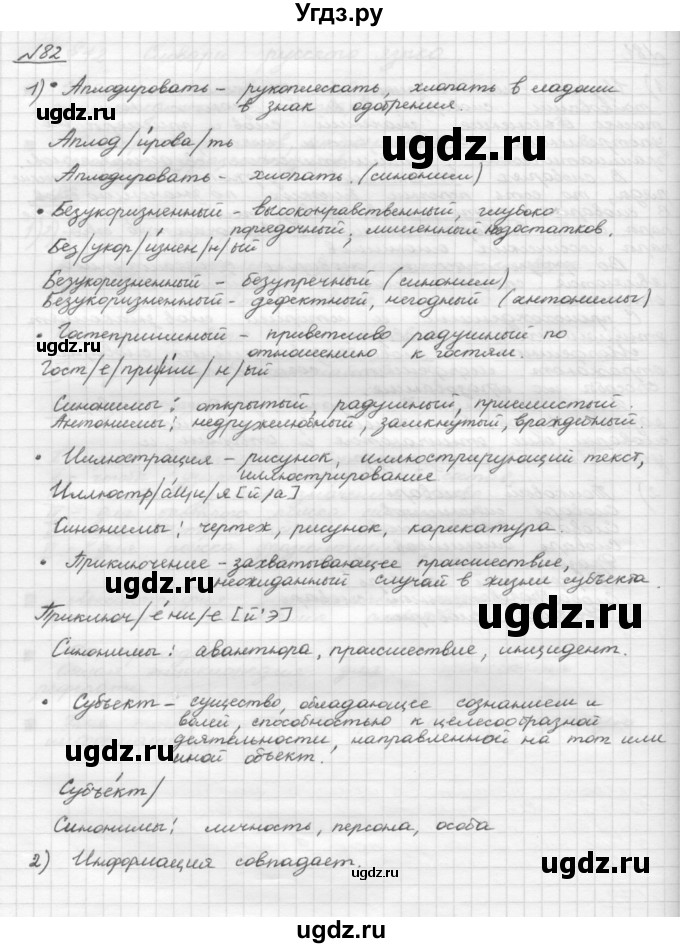 Угдз.ру
№82
1) • Аплодировать – рукоплескать, хлопать в ладоши
в знак одобрения.
ugdz.ru
Аплод/и́рова/ть
ugdz.ru
Аплодировать – хлопать. (синоним)
• Безукоризненный – высоконравственный, глубоко
порядочный, лишенный недостатков.
Без/укор/и́знен/н/ый
ugdz.ru
Безукоризненный – безупречный (синоним)
Безукоризненный – дефектный, негодный (антонимы)
• Гостеприимный – приветливо радушный по
отношению к гостям.
ugdz.ru
Гост/е/прии́м/н/ый
Синонимы: открытый, радушный, приемистый.
Антонимы: недружелюбный, замкнутый, враждебный.
• Иллюстрация – рисунок, иллюстрирующий текст,
иллюстрирование
Иллюстр/а́ци/я [й/а]
ugdz.ru
Синонимы: чертеж, рисунок, карикатура.
• Приключение – захватывающее происшествие,
неожиданный случай в жизни субъекта.
ugdz.ru
Приключ/е́ни/е [й'э]
ugdz.ru
Синонимы: авантюра, происшествие, инцидент.
• Субъект – существо, обладающее сознанием и
волей, способностью к целесообразной
деятельности, направленной на тот или
иной объект.
ugdz.ru
Субъе́кт/
ugdz.ru
Синонимы: личность, персона, особа
2) Информация совпадает.
ugdz.ru
ugdz.ru